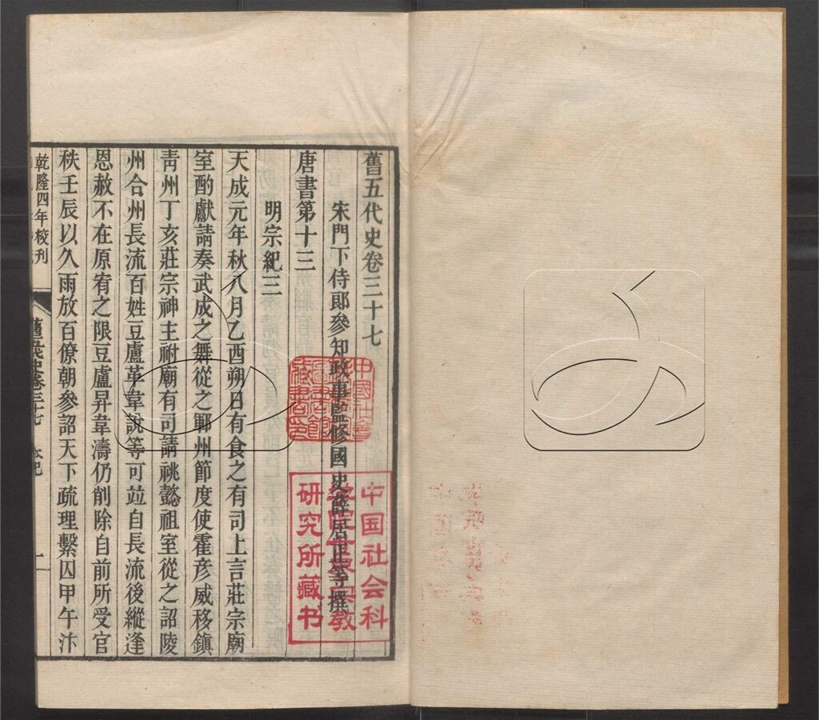 舊五代史卷三十七
宋門下侍郎參知政事監修國史薛居正等撰
唐書第十三
明宗紀三
天成元年秋八月乙酉朔日有食之有司上言莊宗廟
室酌獻請奏武成之舞從之鄆州節度使霍彥威移鎮
青州丁亥莊宗神主祔廟有司請祧懿祖室從之詔陵
州合州長流百姓豆盧革韋說等可竝自長流後縱逢
恩赦不在原宥之限豆盧昇韋濤仍削除自前所受官
秩壬辰以久雨放百僚朝參詔天下疏理繫囚甲午汴
乾隆四年校刊
舊五代史卷三十七 本紀
一
中国社会科
学院世界宗教
研究所藏书